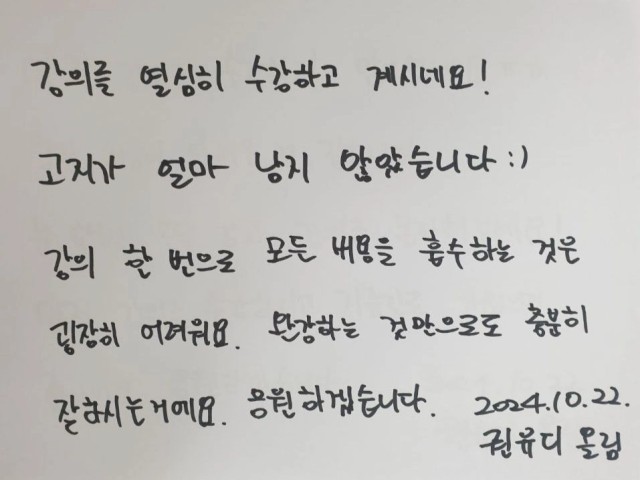 강의를 열심히 수강하고 계시네요!
고지가 얼마 남지 않았습니다 :)
강의 한 번으로 모든 내용을 흡수하는 것은
굉장히 어려워요. 완강하는 것만으로도 충분히
잘하시는거에요. 응원하겠습니다. 2024.10.22.
권유디 올림